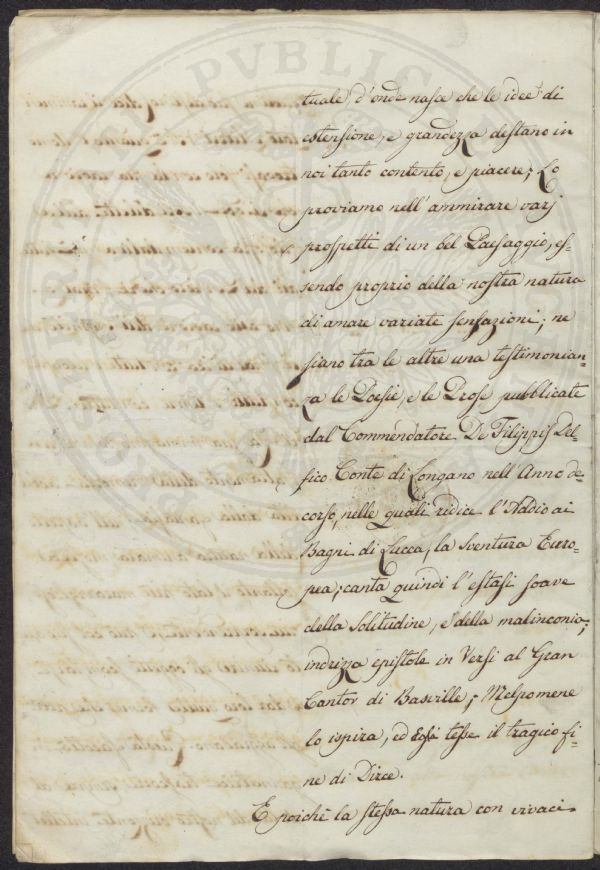 tuale, d'onde nasce che le idee di
estensione, e grandezza destano in
noi tanto contento, e piacere; Lo
proviamo nell'ammirare varj
prospetti di un bel Paesaggio, es-
sendo proprio della nostra natura
di amare variate sensazioni; ne
siano tra le altre una testimonian-
za le Poesie, e le Prose pubblicate
dal Commendatore De Filippis Del-
fico Conte di Longano nell'Anno de-
corso, nelle quali ridice l'Addio ai
Bagni di Lucca, la sventura Euro-
pea; canta quindi l'estasi soave
della solitudine, e della malinconia;
indrizza epistole in Versi al Gran
Cantor di Basville; Melpomene
lo ispira, ed Essa tesse il tragico fi-
ne di Dirce.
E poichè la stessa natura con vivaci